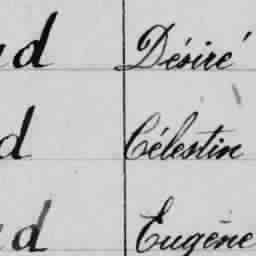 d Désiré
d Célestin
d Eugène